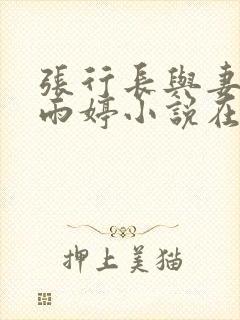 張行長與妻
雨婷小說在
押上美猫